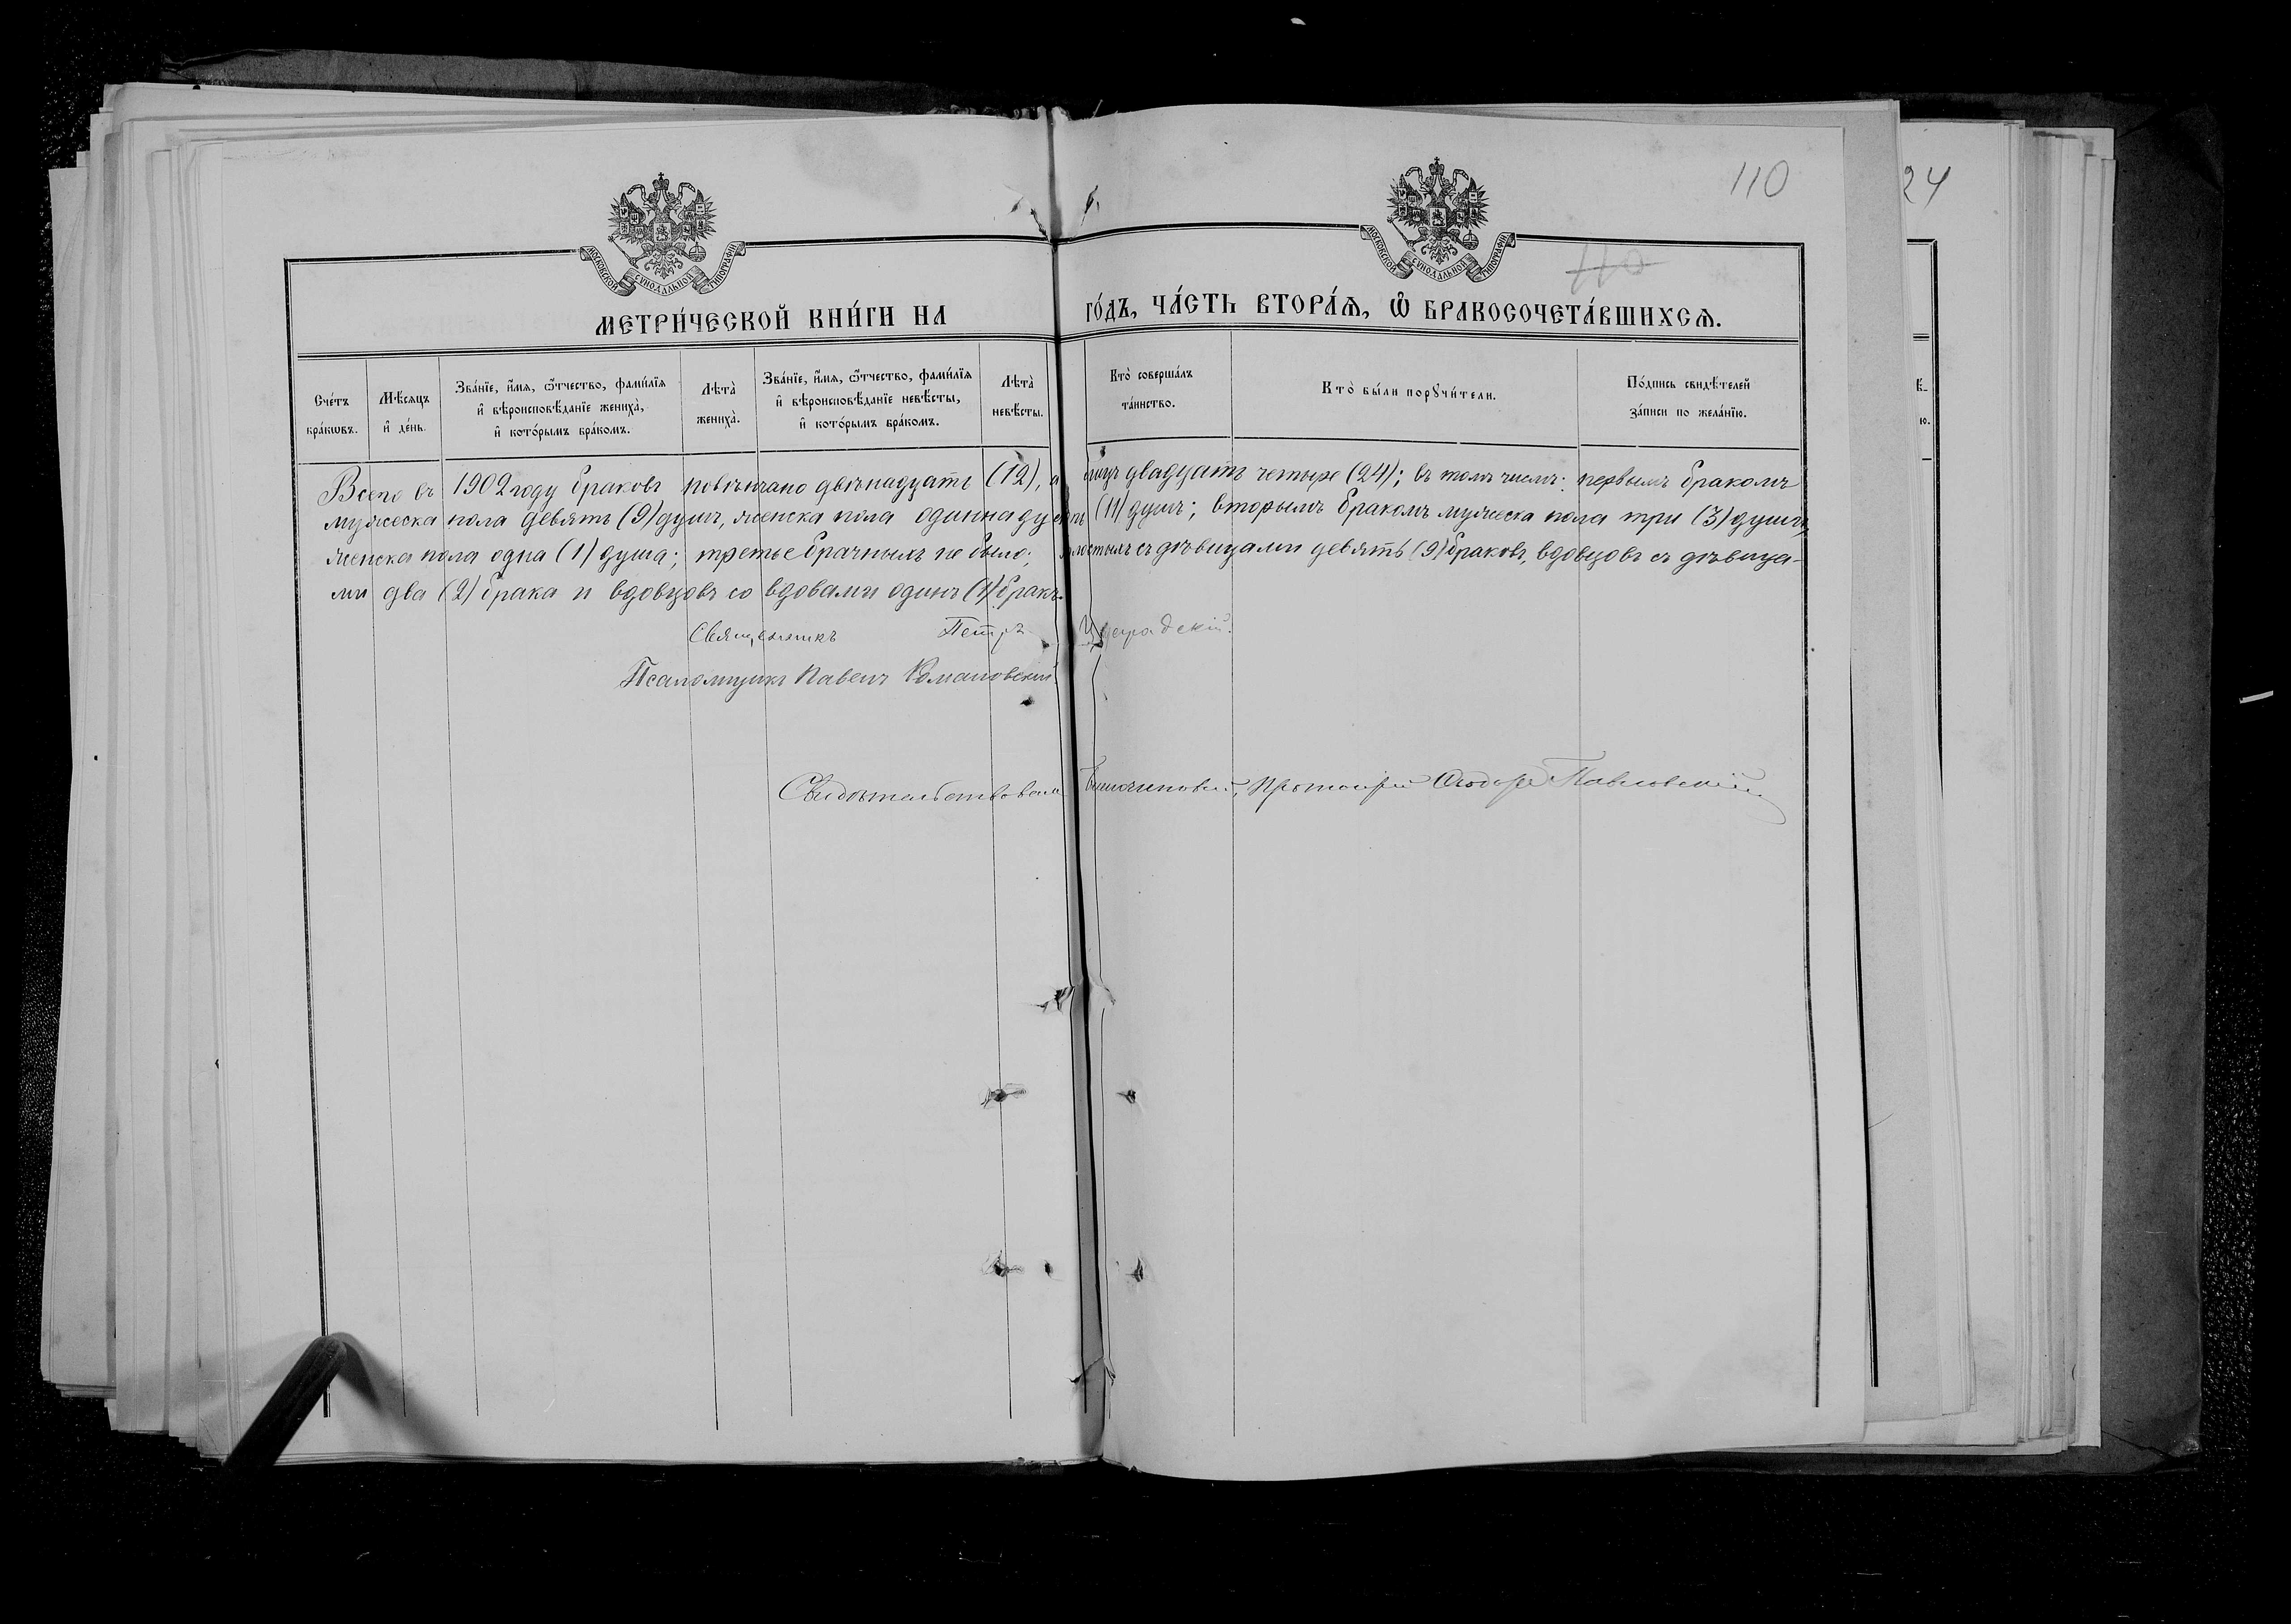 110
24
МОСКОВСКОЙ СѴНОДАЛЬНОЙ ТИПОГРАФІИ
МОСКОВСКОЙ СѴНОДАЛЬНОЙ ТИПОГРАФІИ
110
МЕТРИ́ЧЕСКОЙ КНИ́ГИ НА ГО́ДЪ, ЧА́СТЬ ВТОРА́Ѧ, Ѽ БРАКОСОЧЕТА́ВШИХСѦ.
Сче́тъ бра́кѡвъ.
Мѣ́сѧцъ и҆ де́нь.
Зва́нїе, и҆́мѧ, ѻ҆́тчество, фами́лїѧ и҆ вѣроисповѣ́данїе жениха̀, и҆ кото́рымъ бра́комъ.
Лѣта̀ жениха̀.
Зва́нїе, и҆́мѧ, ѻ҆́тчество, фами́лїѧ и҆ вѣроисповѣ́данїе невѣ́сты, и҆ кото́рымъ бра́комъ.
Лѣта̀ невѣ́сты.
Кто̀ соверша́лъ та́инство.
Кто̀ бы́ли порꙋчи́тели.
По́дпись свидѣ́телей за́писи по жела́нїю.
Всего въ 1902 году браковъ повѣнчано двѣнадцать (12), а лицъ двадцать четыре (24); въ томъ числѣ: первымъ бракомъ
мужеска пола девять (9) душъ, женска пола одиннадцать (11) душъ; вторымъ бракомъ мужеска пола три (3) души,
женска пола одна (1) душа; третьебрачныхъ не было; холостыхъ съ дѣвицами девять (9) браковъ, вдовцовъ съ дѣвица-
ми два (2) брака и вдовцовъ со вдовами одинъ (1) бракъ.
Священникъ Петръ
Псаломщикъ Павелъ Романовскій.
Свидѣтельствовалъ Благочинный, Протоіерей Ѳеодоръ Павловскій